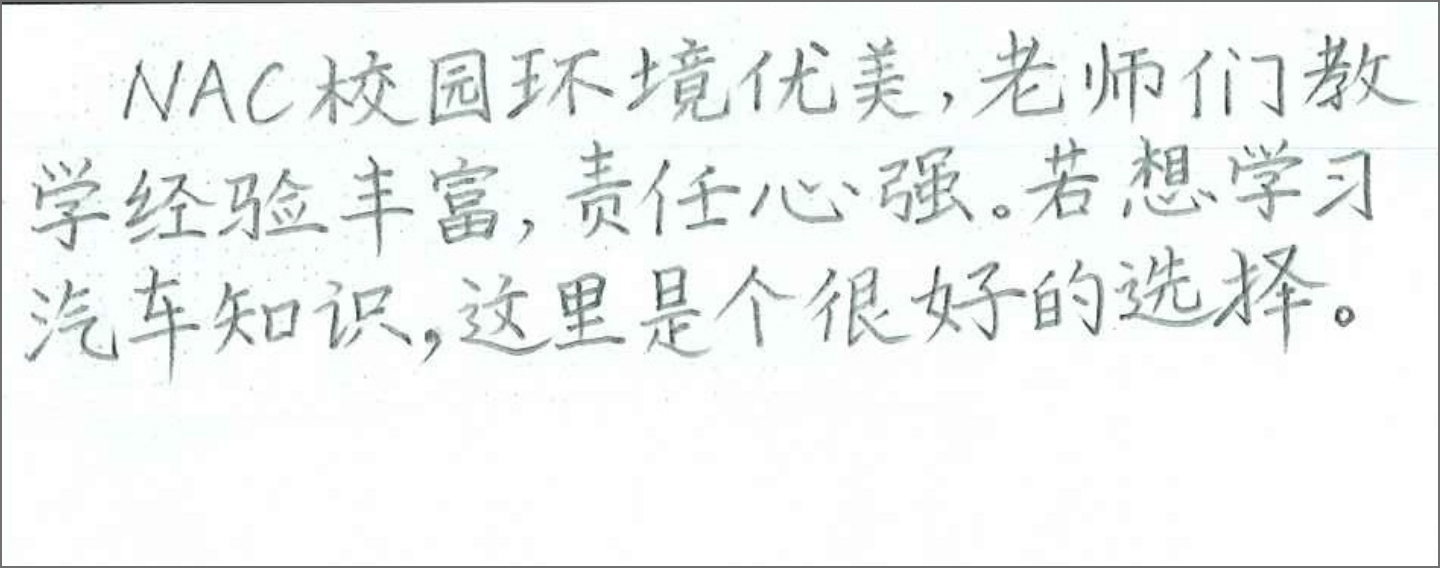 NAC校园环境优美,老师们教
学经验丰富,责任心强。若想学习
汽车知识,这里是个很好的选择。